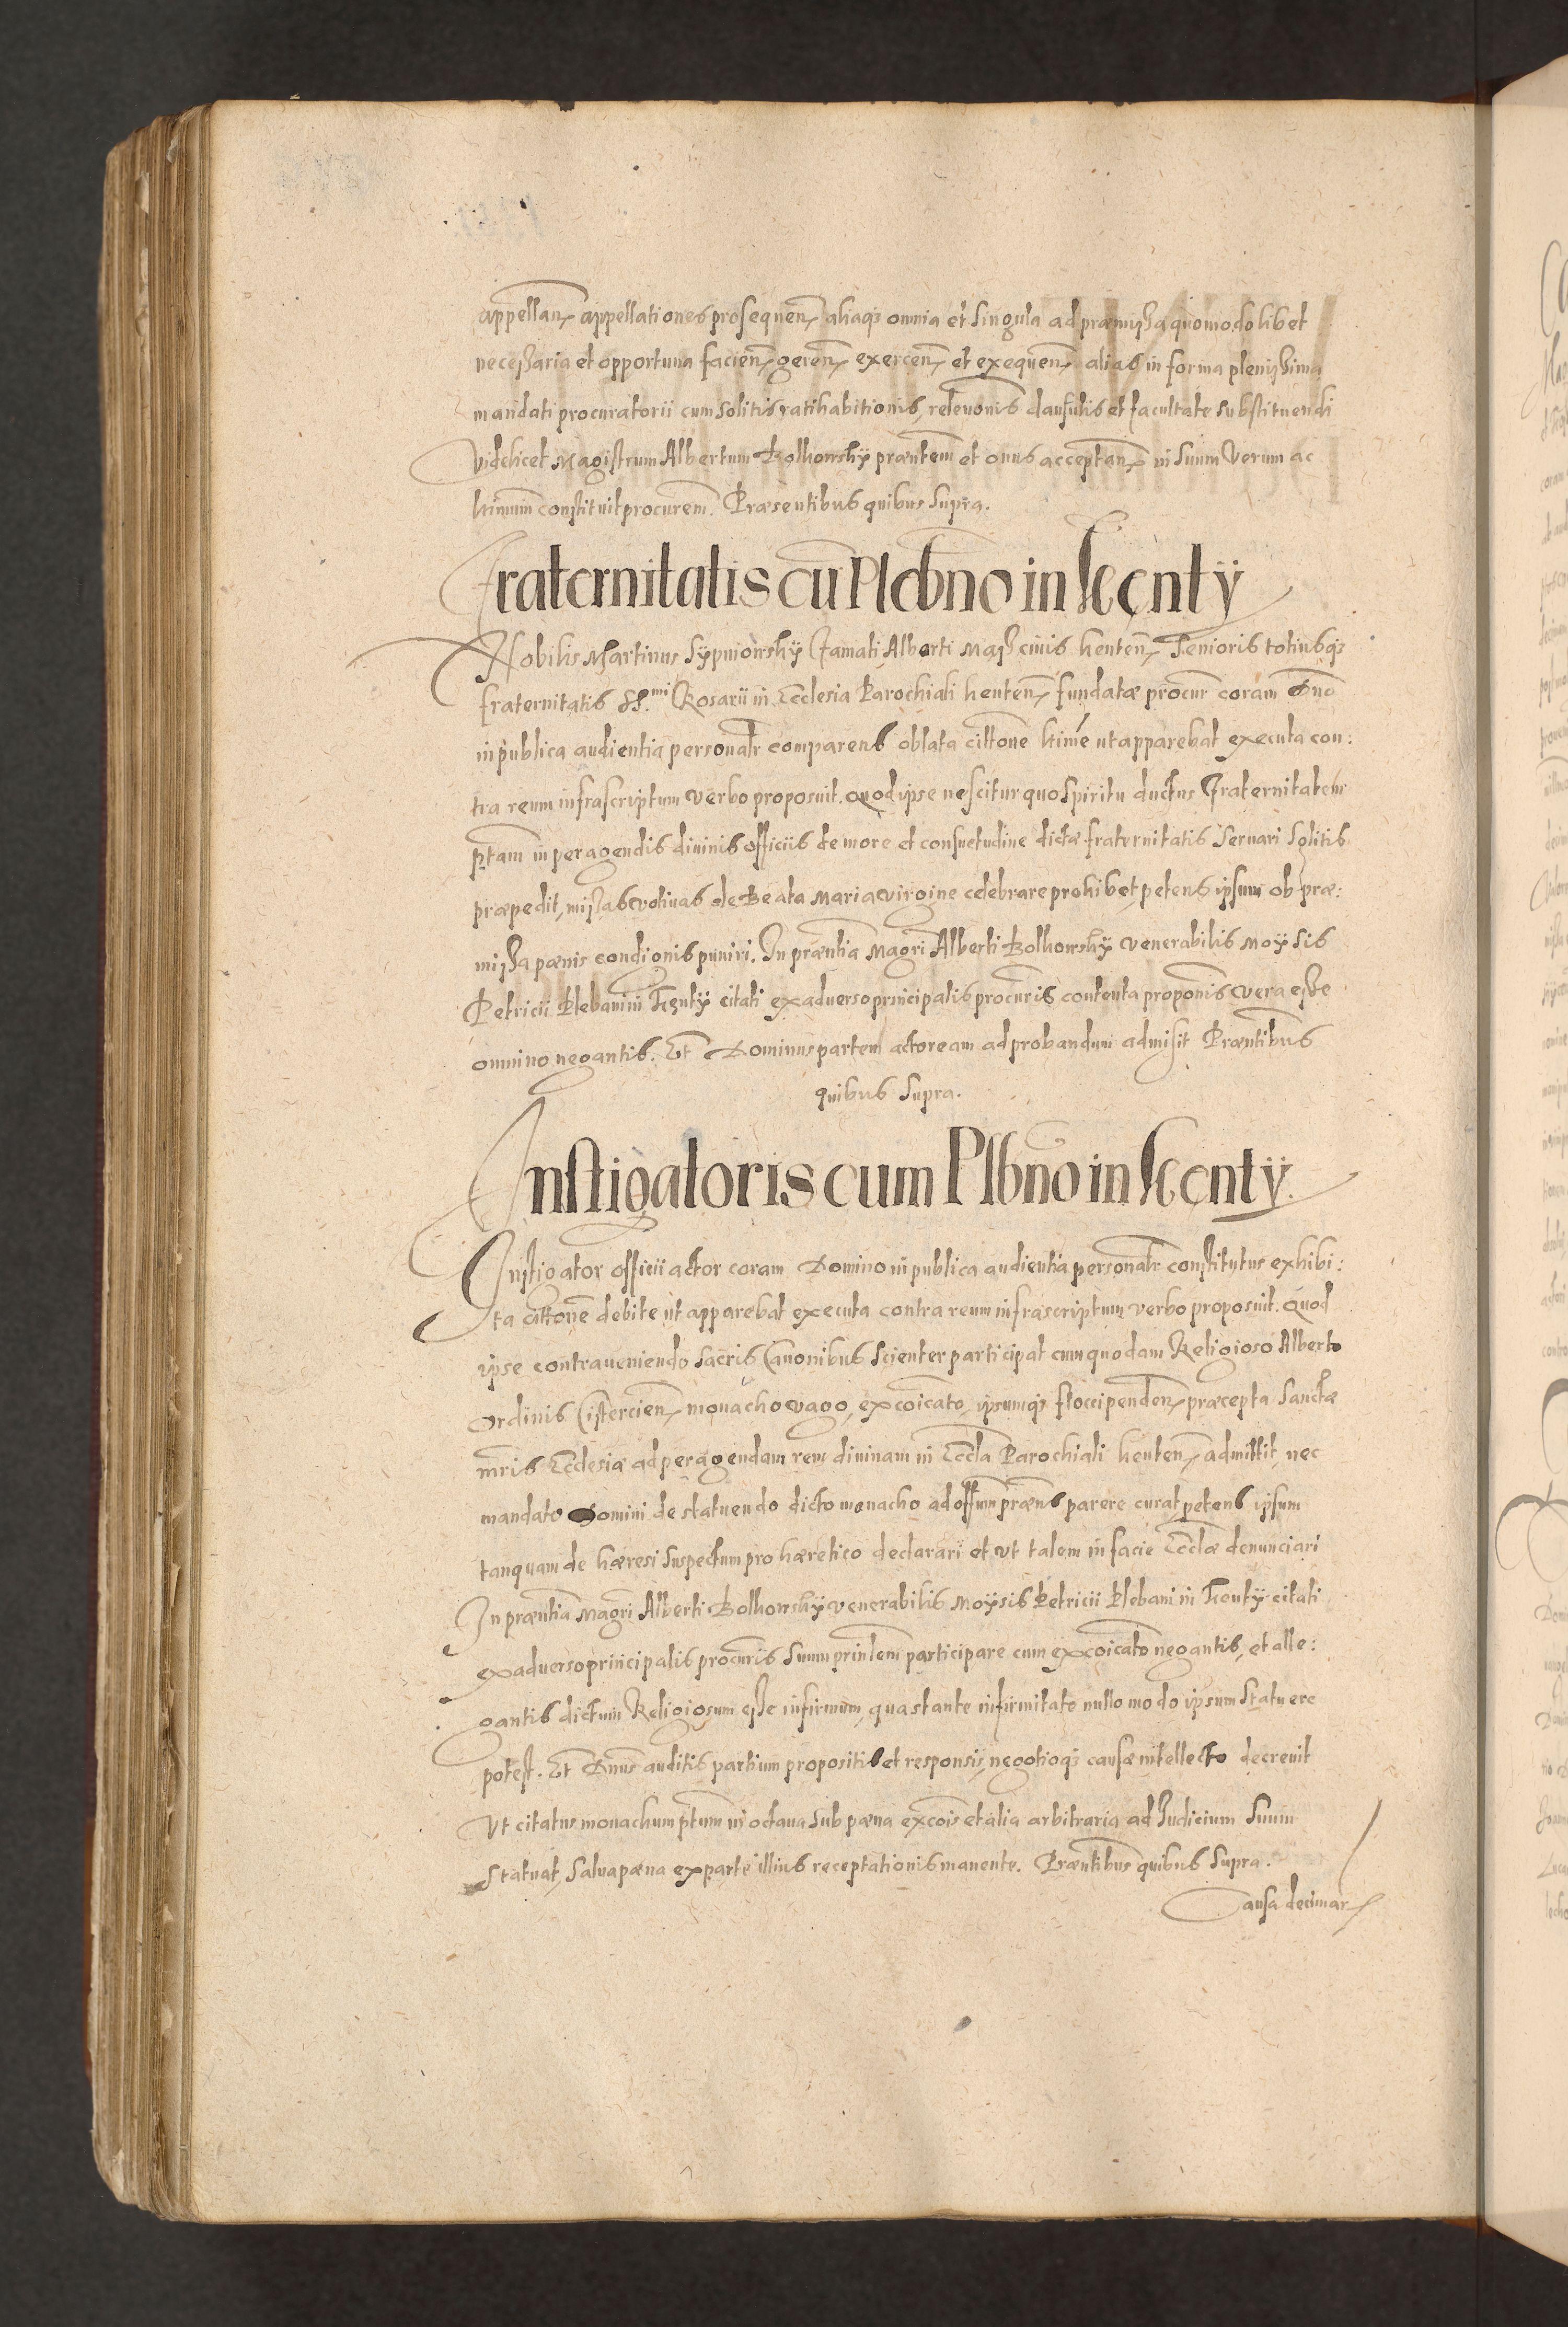 appellan appellationes prosequen aliaq3 omnia et singula ad præmissa quomodolibet
necessaria et opportuna facien geren exercen et exequen alias in forma plenissima
mandati procuratorii cum solitis ratihabitionis, relevonis clausulis et facultate substituendi
Videlicet Magistrum Albertum Bolkowsky præntem et onus acceptan in suum Verum ac
ltimum constituit procurem. Præsentibus quibus supra.
Fraternitatis cu Plebno in Kenty
Nobilis Martinus Sypniowsky famati Alberti civis kenten Senioris totiusq3
fraternitatis SS.mi Rosarii in Ecclesia Parochiali kenten fundatæ procur coram Dno
in publica audientia personalr comparens oblata cittone ltime ut apparebat executa con:
tra reum infrascriptum verbo proposuit. Quod ipse nescitur quo Spiritu ductus Fraternitatem
ptam in peragendis divinis officiis de more et consuetudine dictæ fraternitatis servari solitis
præpedit, missas votivas de Beata Maria virgine celebrare prohibet, petens ipsum ob præ:
missa pænis condignis puniri. In præntia Magri Alberti Bolkowsky venerabilis Moysis
Petricii Plebani in Kenty citati ex adverso principalis procuris contenta proponis vera esse
omnino negantis. Et Dominus partem actoream ad probandum admisit Præntibus
quibus supra.
Instigatoris cum Plbno in Kenty.
Instigator officii actor coram Domino in publica audientia personalr constitutus exhibi:
ta cittone debite ut apparebat executa contra reum infrascriptum verbo proposuit. Quod
ipse contraveniendo sacris Canonibus scienter participat cum quodam Religioso Alberto
Ordinis Cistercien monacho vago, excoicato, ipsumq3 floccipenden præcepta Sanctæ
mris Ecclesiæ ad peragendam rem divinam in Eccla Parochiali kenten admittit, nec
mandato Domini de statuendo dicto monacho ad offum præns parere curat, petens ipsum
tanquam de hæresi suspectum pro hæretico declarari et ut talem in facie Ecclæ denunciari
In præntia Magri Alberti Bolkowsky venerabilis Moysis Petricii Plebani in Kenty citati
ex adverso principalis procuris suum prinlem participare cum excoicato negantis, et alle:
gantis dictum Religiosum esse infirmum, qua stante infirmitate nullo modo ipsum statuere
potest. Et Dnus auditis partium propositis et responsis, negotioq3 causæ intellecto decrevit
Ut citatus monachum ptum in octava sub pæna excois et alia arbitraria ad Judicium suum
statuat, salva pæna ex parte illius receptationis manente. Præntibus quibus supra.
Causa decimar